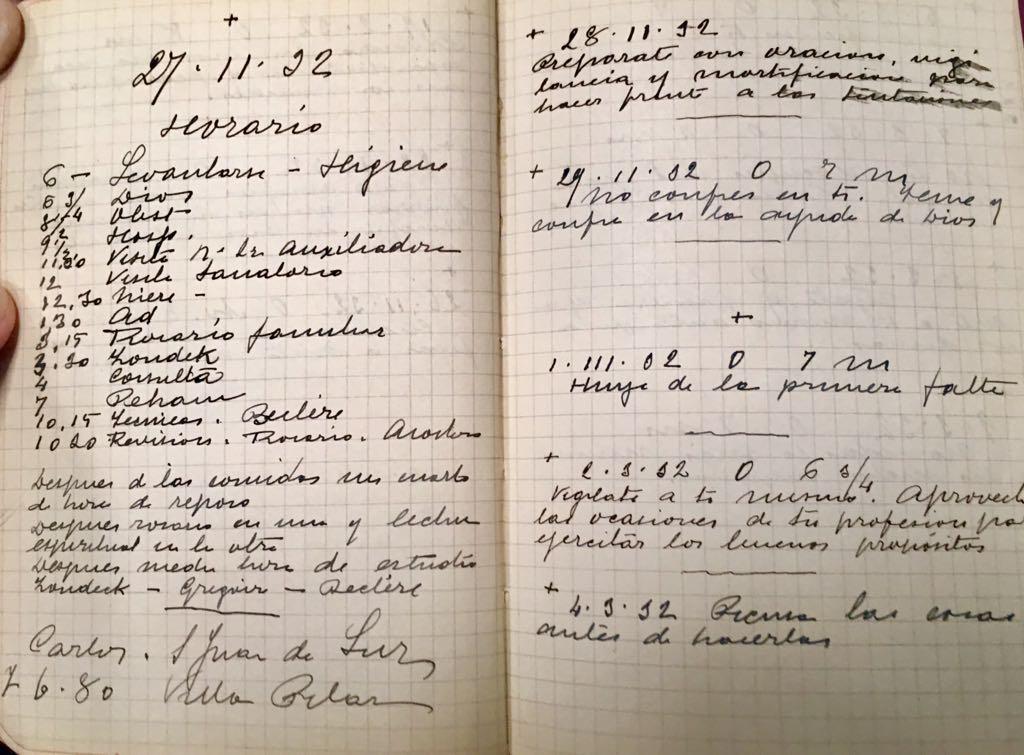 +
27·11·32
Horario
6 – Levantarse – Higiene
6 3/4 Dios
8 Obst
9 1/2 Hosp.
11,30 Visita Auxiliadora
12 Visita Sanatorio
12,30
1,30 Ad
3,15 Rosario familiar
3,30 Zondek
4 Consulta
7
10,15 Tecnicas. Beclére
10 20 Revision. Rosario.
Despues de las comidas un cuarto
de hora de reposo
Despues rosario en una y lectura
espiritual en la otra
Despues media hora de estudio
Zondeck – Gregoire – Beclére
Carlos. S Juan de Luz
7 6·80 Villa Pilar
+ 28·11·32
Preparate con oracion, vigi
lancia y mortificacion para
hacer frente a las tentaciones
+ 29·11·32 0 7 m
No confies en ti. Teme y
confia en la ayuda de Dios
+
1·111·32 0 7 m
Huye de la primera falta
+
2·3·32 0 6 3/4
Vigilate a ti mismo. Aprovecha
las ocasiones de tu profesion pa
ejercitar los buenos propósitos
+
4·3·32 Piensa las cosas
antes de hacerlas